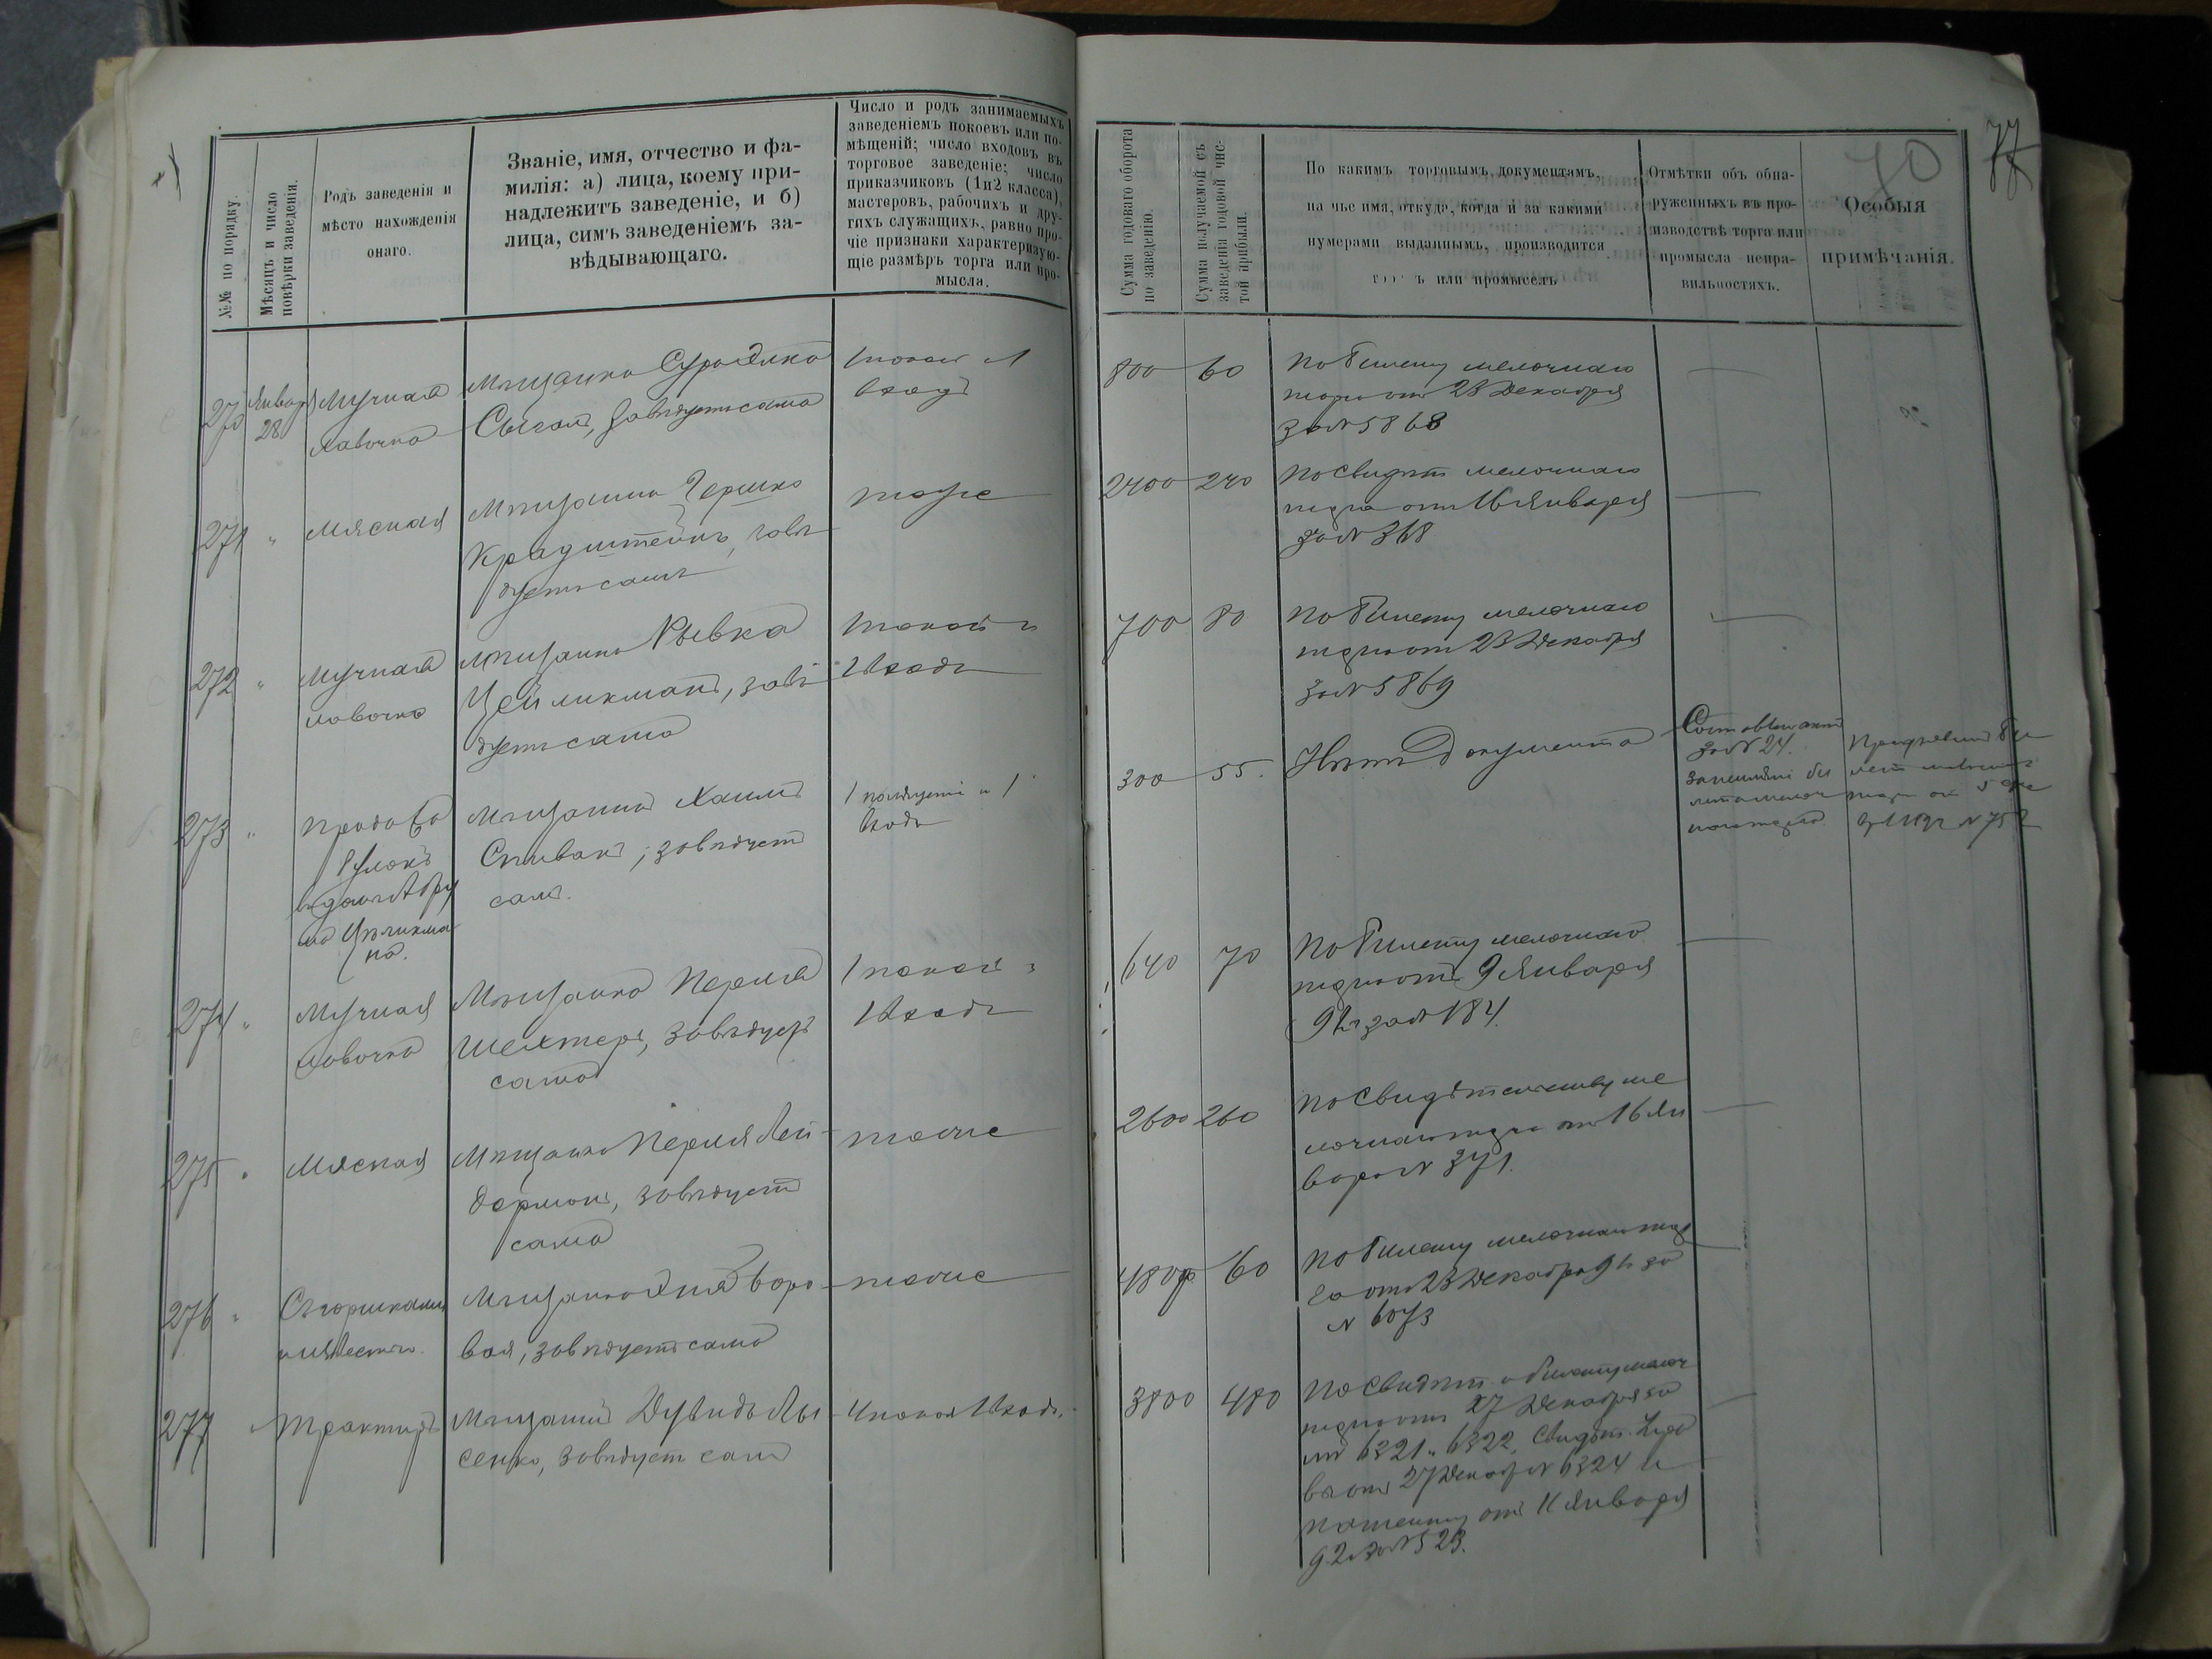 №№ по порядку.
Мѣсяцъ и число
повѣрки заведенія.
Родъ заведенія и
мѣсто нахожденія
онаго.
Званіе, имя, отчество и фа-
милія: а) лица, коему при-
надлежитъ заведеніе, и б)
лица, симъ заведеніемъ за-
вѣдывающаго.
Число и родъ занимаемыхъ
заведеніемъ покоевъ или по-
мѣщеній; число входовъ въ
торговое заведеніе; число
приказчиковъ (1и2 класса),
мастеровъ, рабочихъ и дру-
гихъ служащихъ, равно про-
чіе признаки характеризую-
щіе размѣръ торга или про-
мысла.
Сумма годоваго оборота
по заведенію.
Сумма получаемой съ
заведенія годовой чис-
той прибыли.
По какимъ торговымъ документамъ,
на чье имя, откуда, когда и за какими
нумерами выданнымъ, производится
ъ или промыселъ
Отмѣтки объ обна-
руженныхъ въ про-
изводствѣ торга или
промысла непра-
вильностяхъ.
Особыя
примѣчанія.
70
77
270
Января
28
Мучная
лавочка
Мѣщанка Сура Элка
Сыгал, завѣдуетъ сама
1 покой и 1
входъ
800
60
По билету мелочнаго
торга отъ 23 Декабря
за № 5868
271
"
Мясная
Мѣщанинъ Гершко
Крадштейнъ, завѣ
дуетъ самъ
тоже
2400
240
По свидѣт мелочнаго
торга отъ 16 Января
за № 368
272
"
Мучная
лавочка
Мѣщанка Рывка
Цейликманъ, завѣ
дуетъ сама
1 покой и
1 входъ
700
80
По билету мелочнаго
торга отъ 23 Декабря
за № 5869
273
"
Продажа
булокъ
Мѣщанинъ Хаимъ
Спивакъ, завѣдуетъ
самъ.
1 и 1
входъ
300
55.
Нѣтъ документа
Составленъ актъ
за № 24.
№ 752
274
"
Мучная
лавочка
Мѣщанка Перля
Шехтеръ, завѣдуетъ
сама
1 покой и
1 входъ
640
70
По билету мелочнаго
торга отъ 9 Января
92 за № 184.
275
"
Мясная
Мѣщанка Перля Лей
дерманъ, завѣдуетъ
сама
тоже
2600
260
По свидѣтельству ме
лочнаго торга отъ 16 Ян
варя № 371.
276
"
Съ горшками
Мѣщанка Хая Боро
вая, завѣдуетъ сама
тоже
480
60
По билету мелочнаго тор
га отъ 23 Декабря 91 за
№ 6073
277
"
Трактиръ
Мѣщанинъ Дувидъ Лы
сенко, завѣдуетъ самъ
4 покоя 1 входъ.
3800
480
По свидѣт. и билету мелоч
торга отъ 27 Декабря за
№№ 6321 и 6322, свидѣт.
отъ 27 Декабр № 6324 и
патенту отъ 11 Января
92 за № 523.